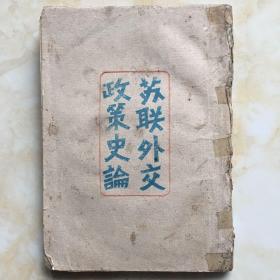 苏联外交
政策史論